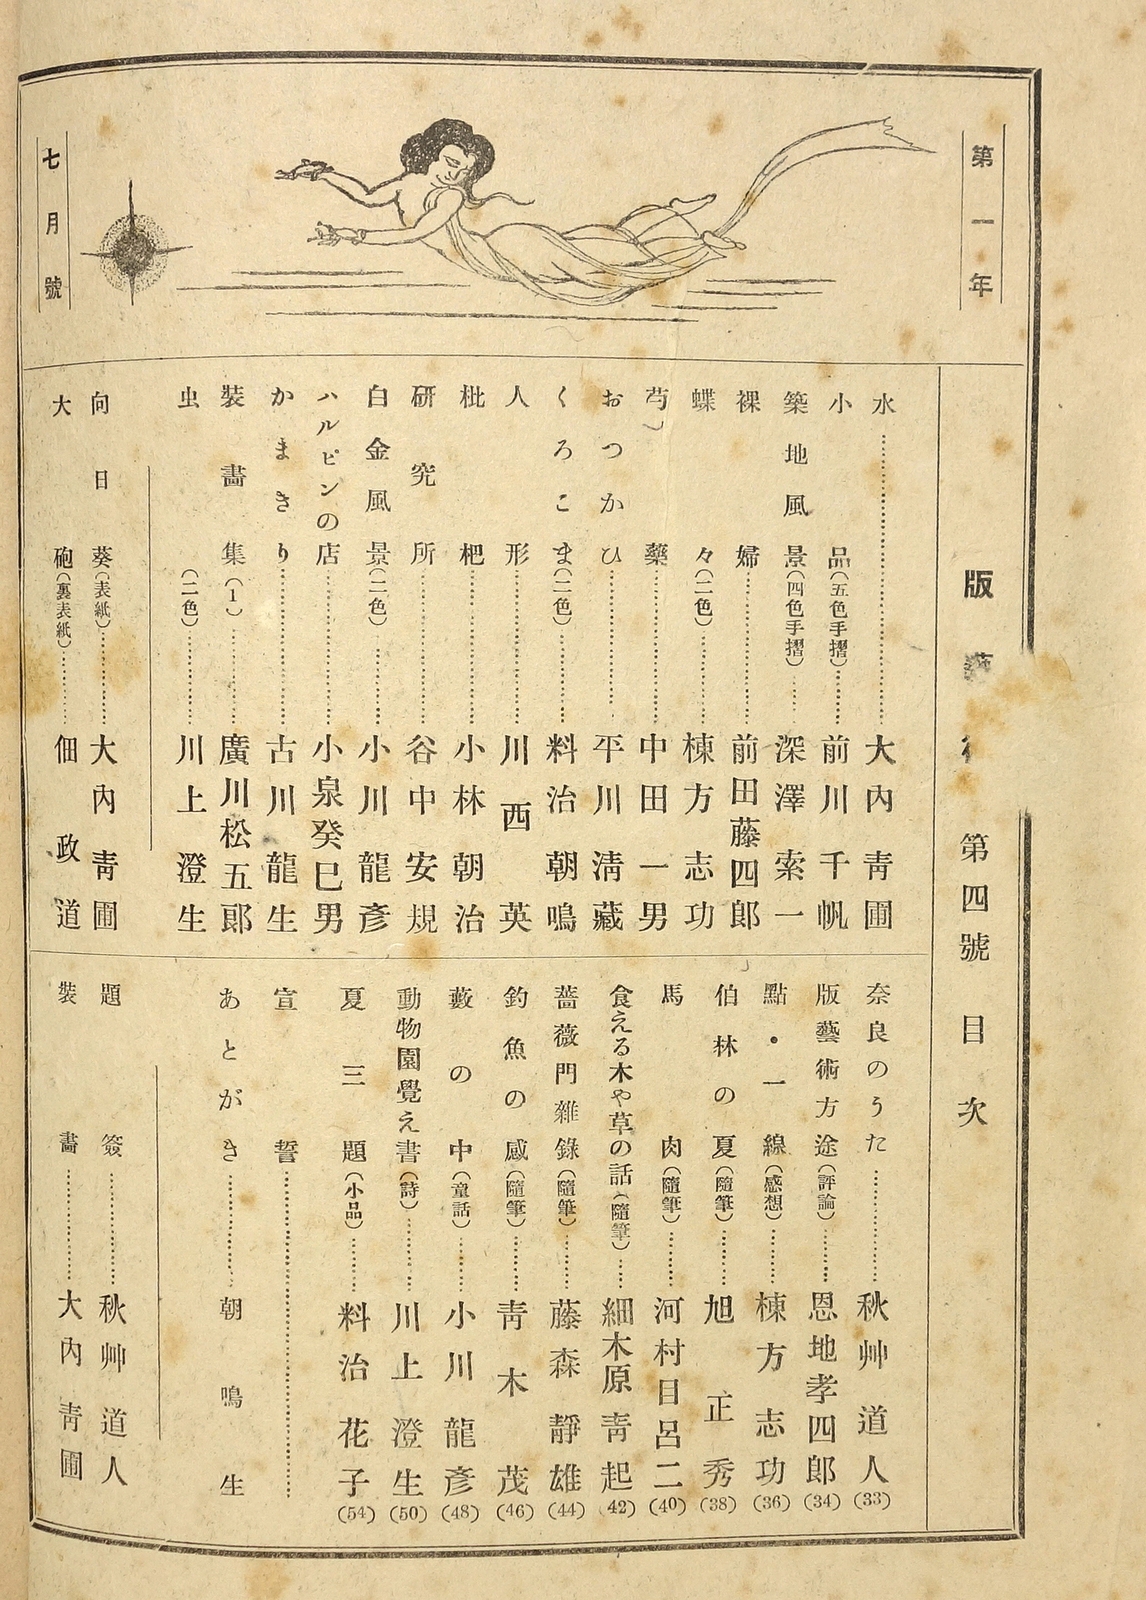 第一年
七月號
版藝 第四號 目次
水……大內靑圃
小品(五色手摺)……前川千帆
築地風景(四色手摺)……深澤索一
裸婦……前田藤四郎
蝶々(二色)……棟方志功
芍藥……中田一男
おつかひ……平川淸藏
くろこま(二色)……料治朝鳴
人形……川西英
枇杷……小林朝治
研究所……谷中安規
白金風景(二色)……小川龍彥
ハルピンの店……小泉癸巳男
かまきり……古川龍生
裝畵集(1)……廣川松五郞
虫(二色)……川上澄生
向日葵(表紙)……大內靑圃
大砲(裏表紙)……佃政道
奈良のうた……秋艸道人(33)
版藝術方途(評論)……恩地孝四郞(34)
點・一線(感想)……棟方志功(36)
伯林の夏(隨筆)……旭正秀(38)
馬肉(隨筆)……河村目呂二(40)
食える木や草の話(隨筆)……細木原靑起(42)
薔薇門雜錄(隨筆)……藤森靜雄(44)
釣魚の感(隨筆)……靑木茂(46)
藪の中(童話)……小川龍彥(48)
動物園覺え書(詩)……川上澄生(50)
夏三題(小品)……料治花子(54)
宣誓……
あとがき……朝鳴生
題簽……秋艸道人
裝畵……大內靑圃